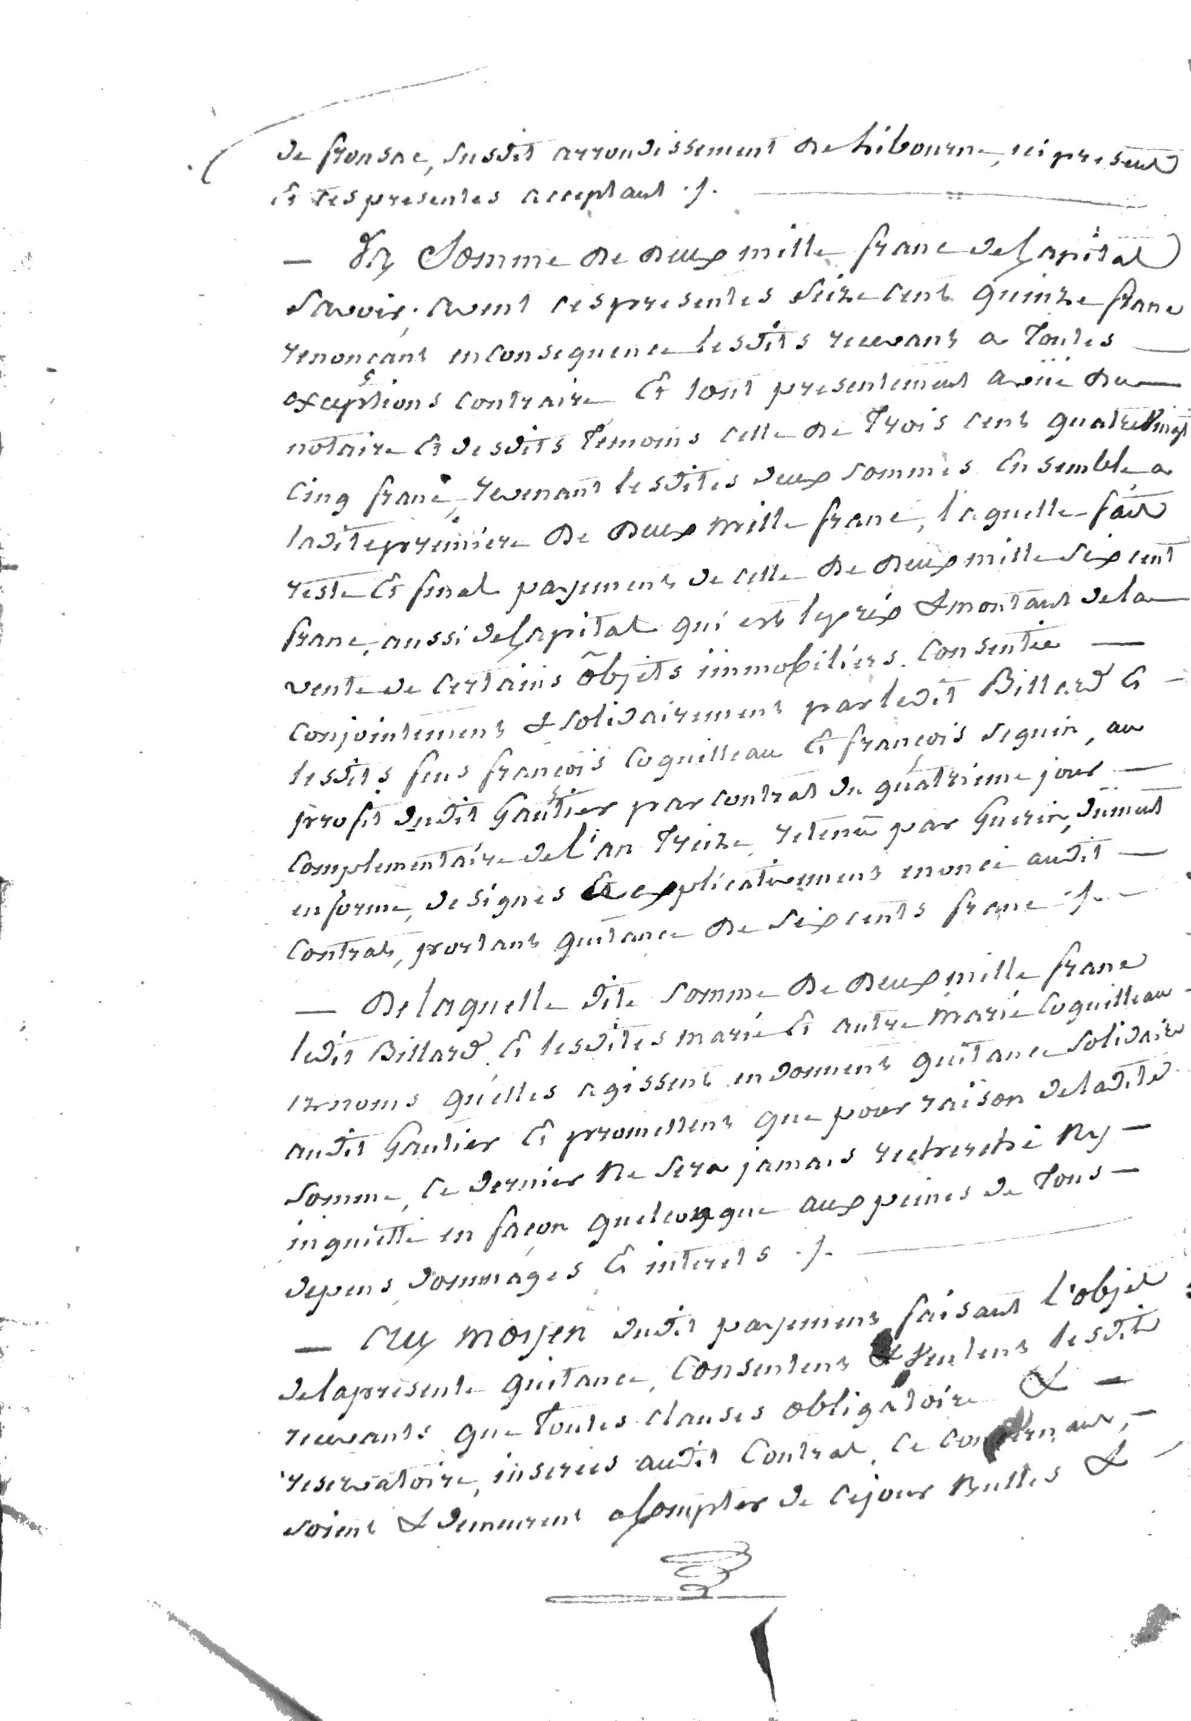 de fronsac, susdit arrondissement de Libourne, ici present
& ces presentes acceptant ./.
— La Somme de deux mille franc de Capital
savoir; avent ces presentes seize cent quinze franc
renonçant en consequence lesdits recevant a toutes —
exceptions contraire & tout presentement a vüe du —
notaire & desdits temoins celle de trois cent quatre Vingt
cinq franc, revenant lesdites deux sommes Ensemble a
ladite premiere de deux mille franc, laquelle fait
reste & final payement de celle de deux mille six cent
franc, aussi de Capital qui est le prix & montant de la —
vente de certains objets immobiliers consentie —
conjointement & solidairement par ledit Billard & —
lesdits feus françois Coquilleau & françois seguin, au
profit dudit Gautier par contrat du quatrieme jour —
complementaire de l'an treize, retenu par Guerin, dûment
en forme, designés & explicativement enoncé audit —
Contrat, portant quitance de six cents franc ./. —
— De laquelle dite somme de deux mille franc
ledit Billard & lesdites marie & autre marie Coquilleau
ez noms qu'elles agissent en donnent quitance solidaire
audit Gautier & promettent que pour raison de ladite
somme, ce dernier ne sera jamais recherché ny —
inquietté en façon quelconque aux peines de tous —
depens, dommages & interets ./.
— Au moyen dudit payement faisant l'objet
de la presente quitance, Consentent & veulent lesdits
recevants que toutes clauses obligatoire & —
reservatoire, inserées audit Contrat, ce concernant, —
soient & demeurent a Compter de ce jour Nulles & —